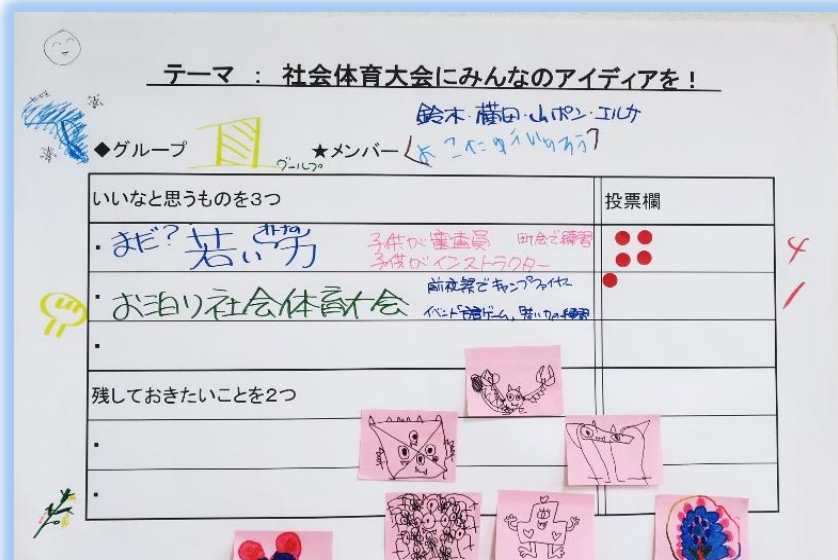 テーマ ： 社会体育大会にみんなのアイディアを！
鈴木・横田・山ポン・エルカ
◆グループ
グループ
★メンバー
いいなと思うものを3つ
投票欄
・まだ？若い力
子供が審査員 町会で練習
子供がインストラクター
4
・お泊り社会体育大会
前夜祭でキャンプファイヤー
イベント
ゲーム
練習
1
・
残しておきたいことを2つ
・
・